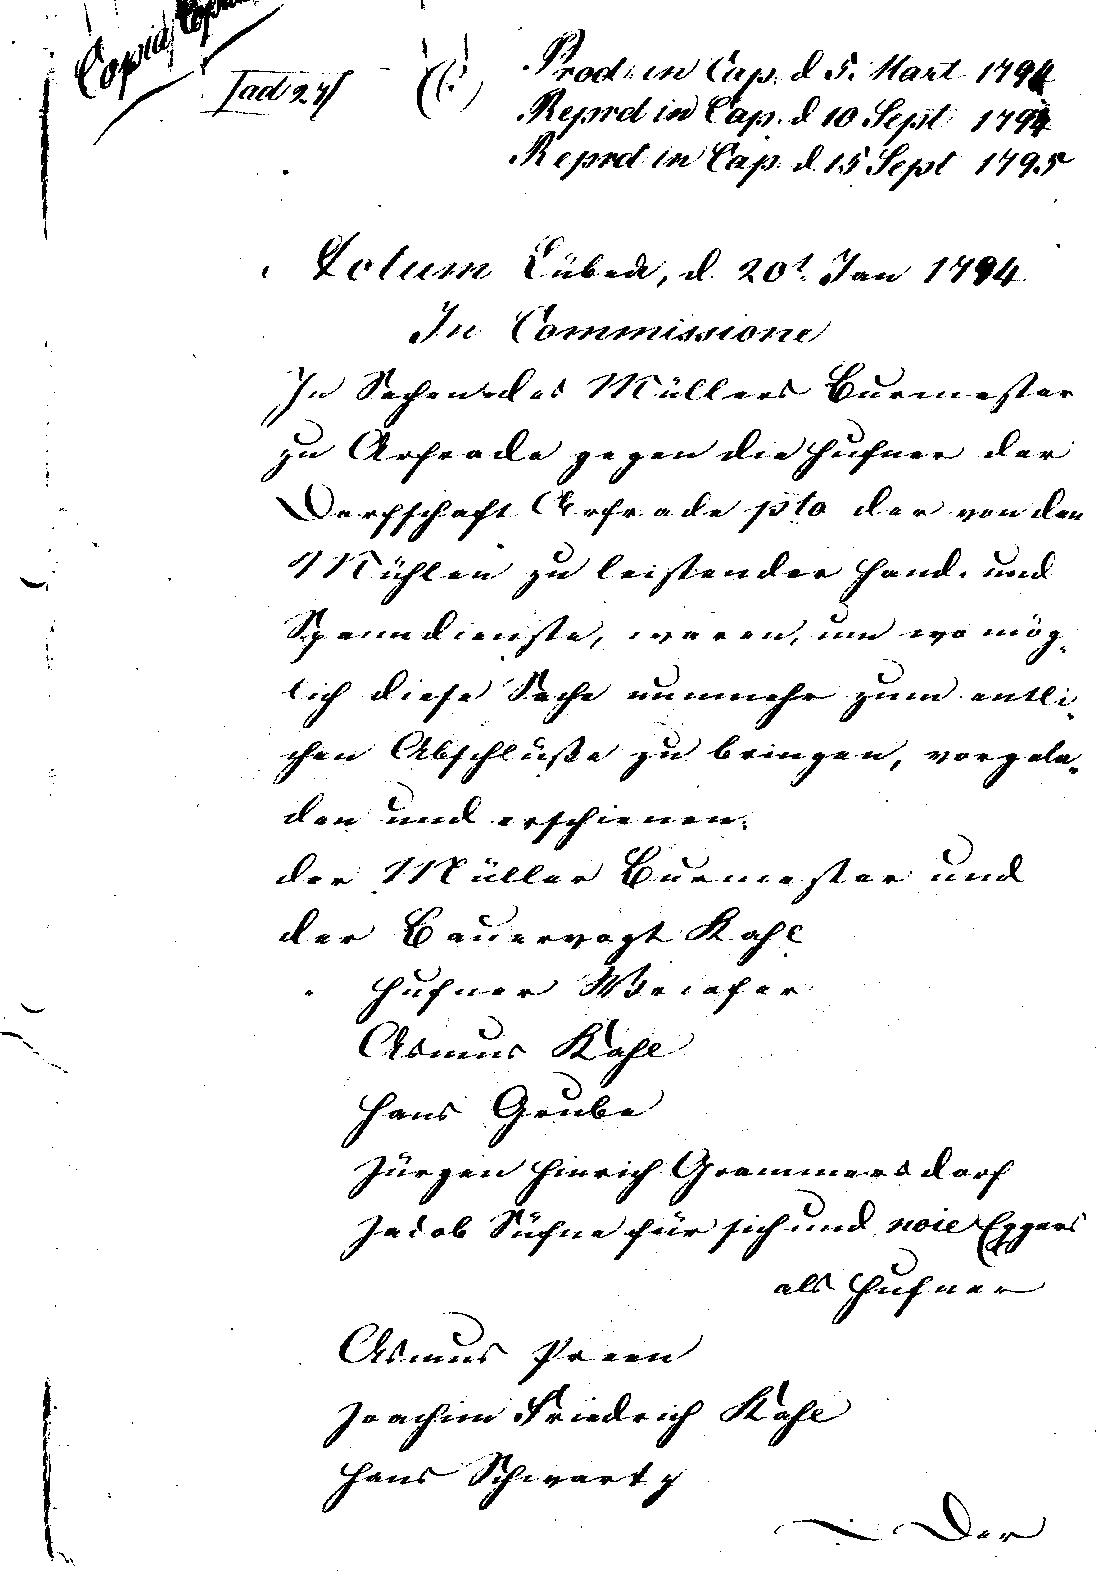 Copia Copiae
[ad 27]
C.
Prod. in Cap. d 5. Mart 1794
Reprd in Cap. d 10 Sept 1794
Reprd in Cap. d 15 Sept 1795
Actum Lübeck, d. 20t. Jan 1794
In Commissione
In Sachen des Müllers Burmester
zu Arfrade gegen die Hufner der
Dorfschaft Arfrade pto der von den
Mühlen zu leistender Hand- und
Spanndienste, waren, um wo mög-
lich diese Sache nunmehr zum entli-
chen Abschluße zu bringen, vorgela-
den und erschienen.
der Müller Burmester und
der Bauervogt Kahl
Hufner
Asmus Kahl
Hans Grube
Jürgen Hinrich Grammersdorf
Jacob für sich und noie Eggers
als Hufner
Asmus Preen
Joachim Friedrich Kahl
Hans Schwartz
Der